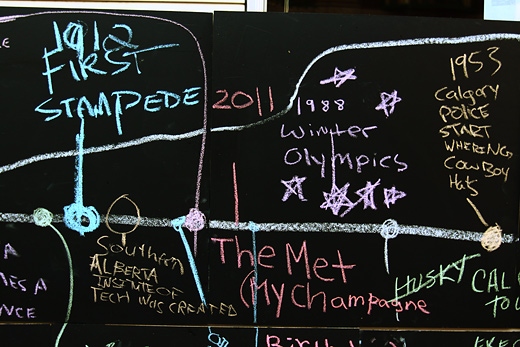 1912
FIRST
STAMPEDE
2011
1988
Winter
Olympics
1953
Calgary
POLICE
START
WHERING
COWBOY
Hats
Southern
ALBERTA
INSTITUTE OF
TECH WAS CREATED
The Met
(My Champagne
HUSKY
CAL
TO
A
MES A
NCE